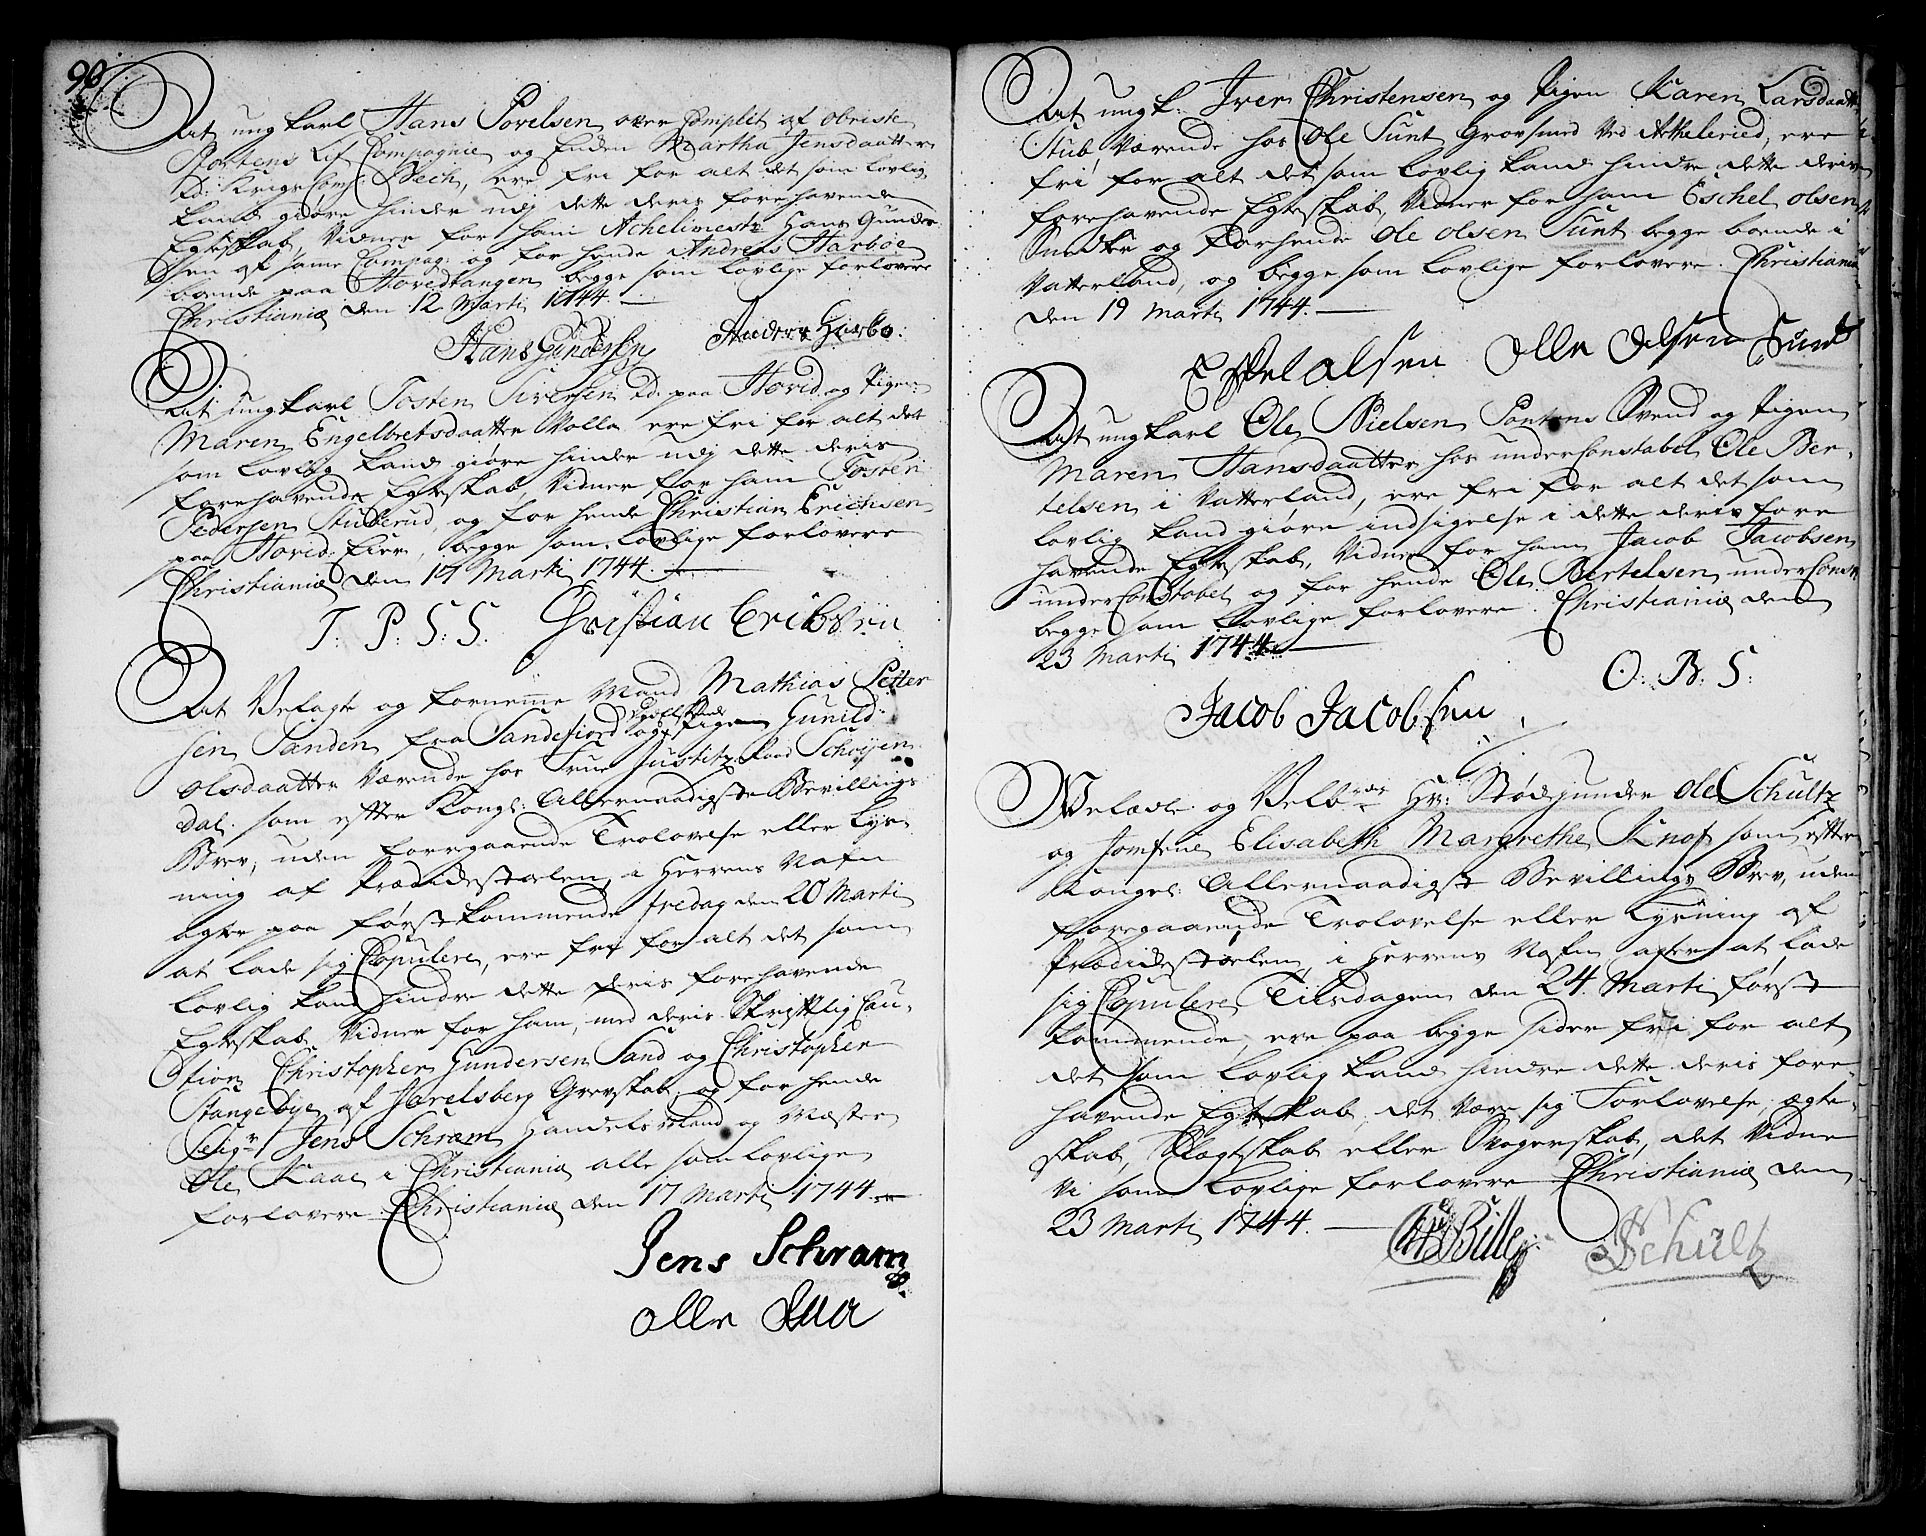 90
At ungkarl Hans Povelsen over Complet af obriste
Stortens Lif Compagnie og Enken Martha Jensdaatter
Krigs Com: Bech, ere fri for alt det som lovlig
kand giøre hinder udj dette deris forehavende
Egteskab, Vidner for ham Hans Gunder
sen af samme Compag: og for hende Andreas Harboe
boende paa Hovedtangen begge som lovlige forlovere
Christiania den 12 Marti 1744.
Hans Gundersen Anders Harbo:
At ungkarl Tosten Siversen paa Hovid og Pigen
Maren Engelbretsdaatter Volla ere fri for alt det
som lovlig kand giøre hinder udj dette deris
forehavende Egteskab, Vidner for ham Tosten
Pedersen Stubberud, og for hende Christian Erichsen
paa Hovid Eier, begge som lovlige forlovere
Christiania den 17 Marti 1744.
T: P: S: S: Christian Erichsen
At Velagte og fornemme Mand Mathias Petter
sen Sanden fra Sandefiord og Pigen Gunild
olsdaatter Værende hos Frue Justitz Raad Schøyen
dal. som efter Kongl: Allernaadigste Bevillings
Brev, uden foregaaende Trolovelse eller Lys-
ning af Prædickestoelen, i Herrens Nafn
agter paa førstkommende fredag den 20 Marti
at lade sig Copulere, ere fri for alt det som
lovlig kand hindre dette deris forehavende
Egteskab. Vidner for ham, med deris Skriftlig Cau-
tion Christopher Gundersen Sand og Christopher
Stangebye af Jarelsberg Grevskab, og for hende
Seigr Jens Schram Handelsmand og Mæster
Ole Kaae i Christiania alle som lovlige
forlovere. Christiania den 17 Marti 1744.
Jens Schram
olle
At ungk: Iver Christensen og Pigen Karen Larsdaatter
Stub, Værende hos Ole Sunt Grovsmed Ved Akkelerud, ere
fri for alt det som lovlig kand hindre dette deris
forehavende Egteskab, Vidner for ham Eschel olsen
Snedker og for hende Ole olsen Sunt begge boende i
Vatterland, og begge som lovlige forlovere. Christiania
den 19 Marti 1744.
Eskel alsen olle Oelsen Sunt
At ungkarl Ole Nielsen Svend og Pigen
Maren Hansdaatter hos underConstabel Ole Ber-
telsen i Vatterland, ere fri for alt det som
lovlig kand giøre indsigelse i dette deris fore
havende Egteskab, Vidner for ham Jacob Jacobsen
underConstabel og for hende Ole Bertelsen underConst:
begge som lovlige forlovere. Christiania den
23 Marti 1744.
O: B: S:
Jacob Jacobsen
Velædle og Velb: Hr: Stødsjunder Ole Schultz
og Jomfrue Elisabeth Margrethe Knof som efter
Kongel: Allernaadigst Bevillings Brev, uden
foregaaende Trolovelse eller Lysning af
Prædickestoelen, i Herrens Nafn agter at lade
sig Copulere Tiirsdagen den 24. Marti først
kommende, ere paa begge sider fri for alt
det som lovlig kand hindre dette deris fore-
havende Egteskab, det Være sig Forlovelse, ægte-
skab, Slægtskab eller Svogerskab, det Vidne
Vi som lovlige forlovere Christiania den
23 Marti 1744.
Bille Schultz